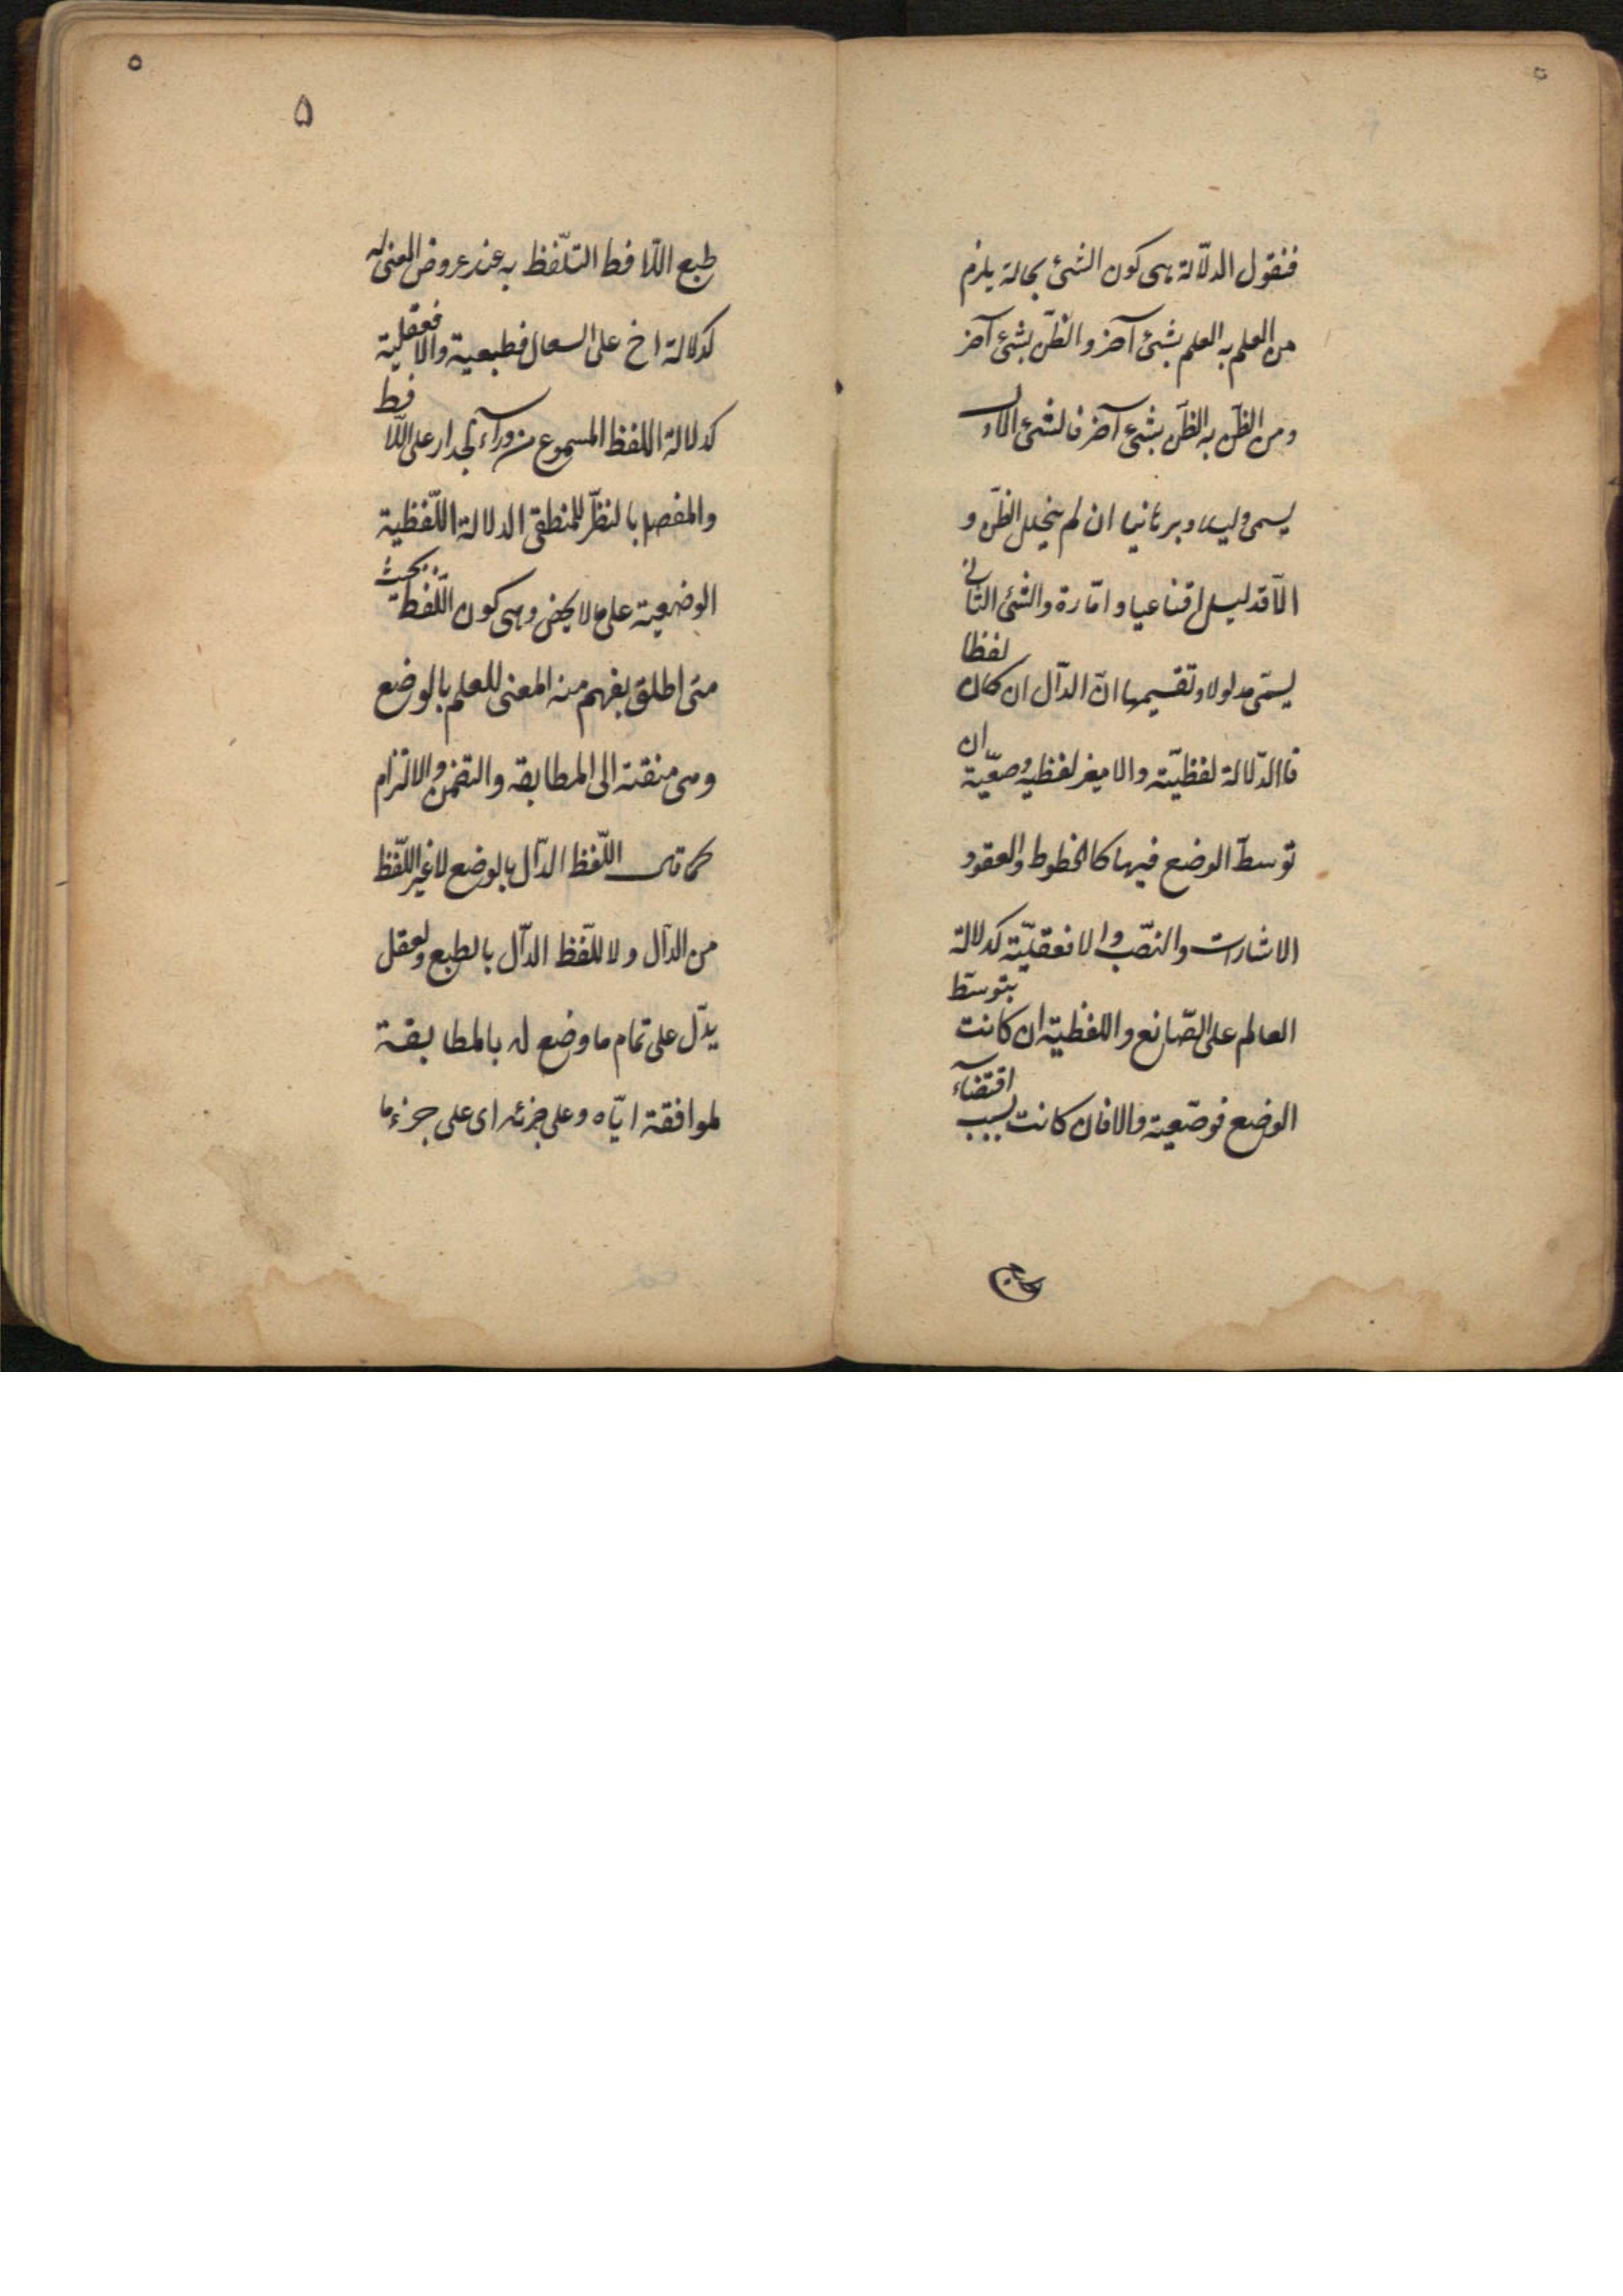 فنقول الدلّالة هى كون الشئ بحالة يلزم
من العلم به العلم بشئ آخر والظنّ بشئ آخر
ومن الظنّ به الظنّ بشئ آخر فالشئ الاول
يسمى دليلا وبرهانيا ان لم يتخلل الظنّ و
الّا فدليل اقناعيا وامّارة والشئ الثانى
يسمّى مدلولا وتقسيمها انّ الدآل ان كان لفظا
فاالدّلالة لفظيّة والا فغير لفظية وضعّية ان
توسطّ الوضع فيها كالخطوط والعقود
الاشارات والنصّب والا فعقليّة كدلالة
العالم على الصّانع واللفظية ان كانت بتوسّط
الوضع فوضّعية والا فان كانت بسبب اقتضآء
٥
۵
طبع اللّافظ التلّفظ به عند عروض المعنى له
كدلالة اخ على السعال فطبعية والا فعقلية
كدلالة اللفظ المسموع من ورآء الجدار على اللّافظ
والمقصود بالنظرّ للمنطقى الدلالة اللّفظية
الوضعية على ما لا يخفى وهى كون اللّفظ بحيث
متى اطلق يفهم منه المعنى للعلم بالوضع
وهى منقسمة الى المطابقة والتضمن والالتزام
كما قال اللّفظ الدآل بالوضع لا غير اللّفظ
من الدآل ولا للّفظ الدآل بالطبع والعقل
يدّل على تمام ما وضع له بالمطابقة
لموافقة ايّاه وعلى جزئه اى على جزء ما